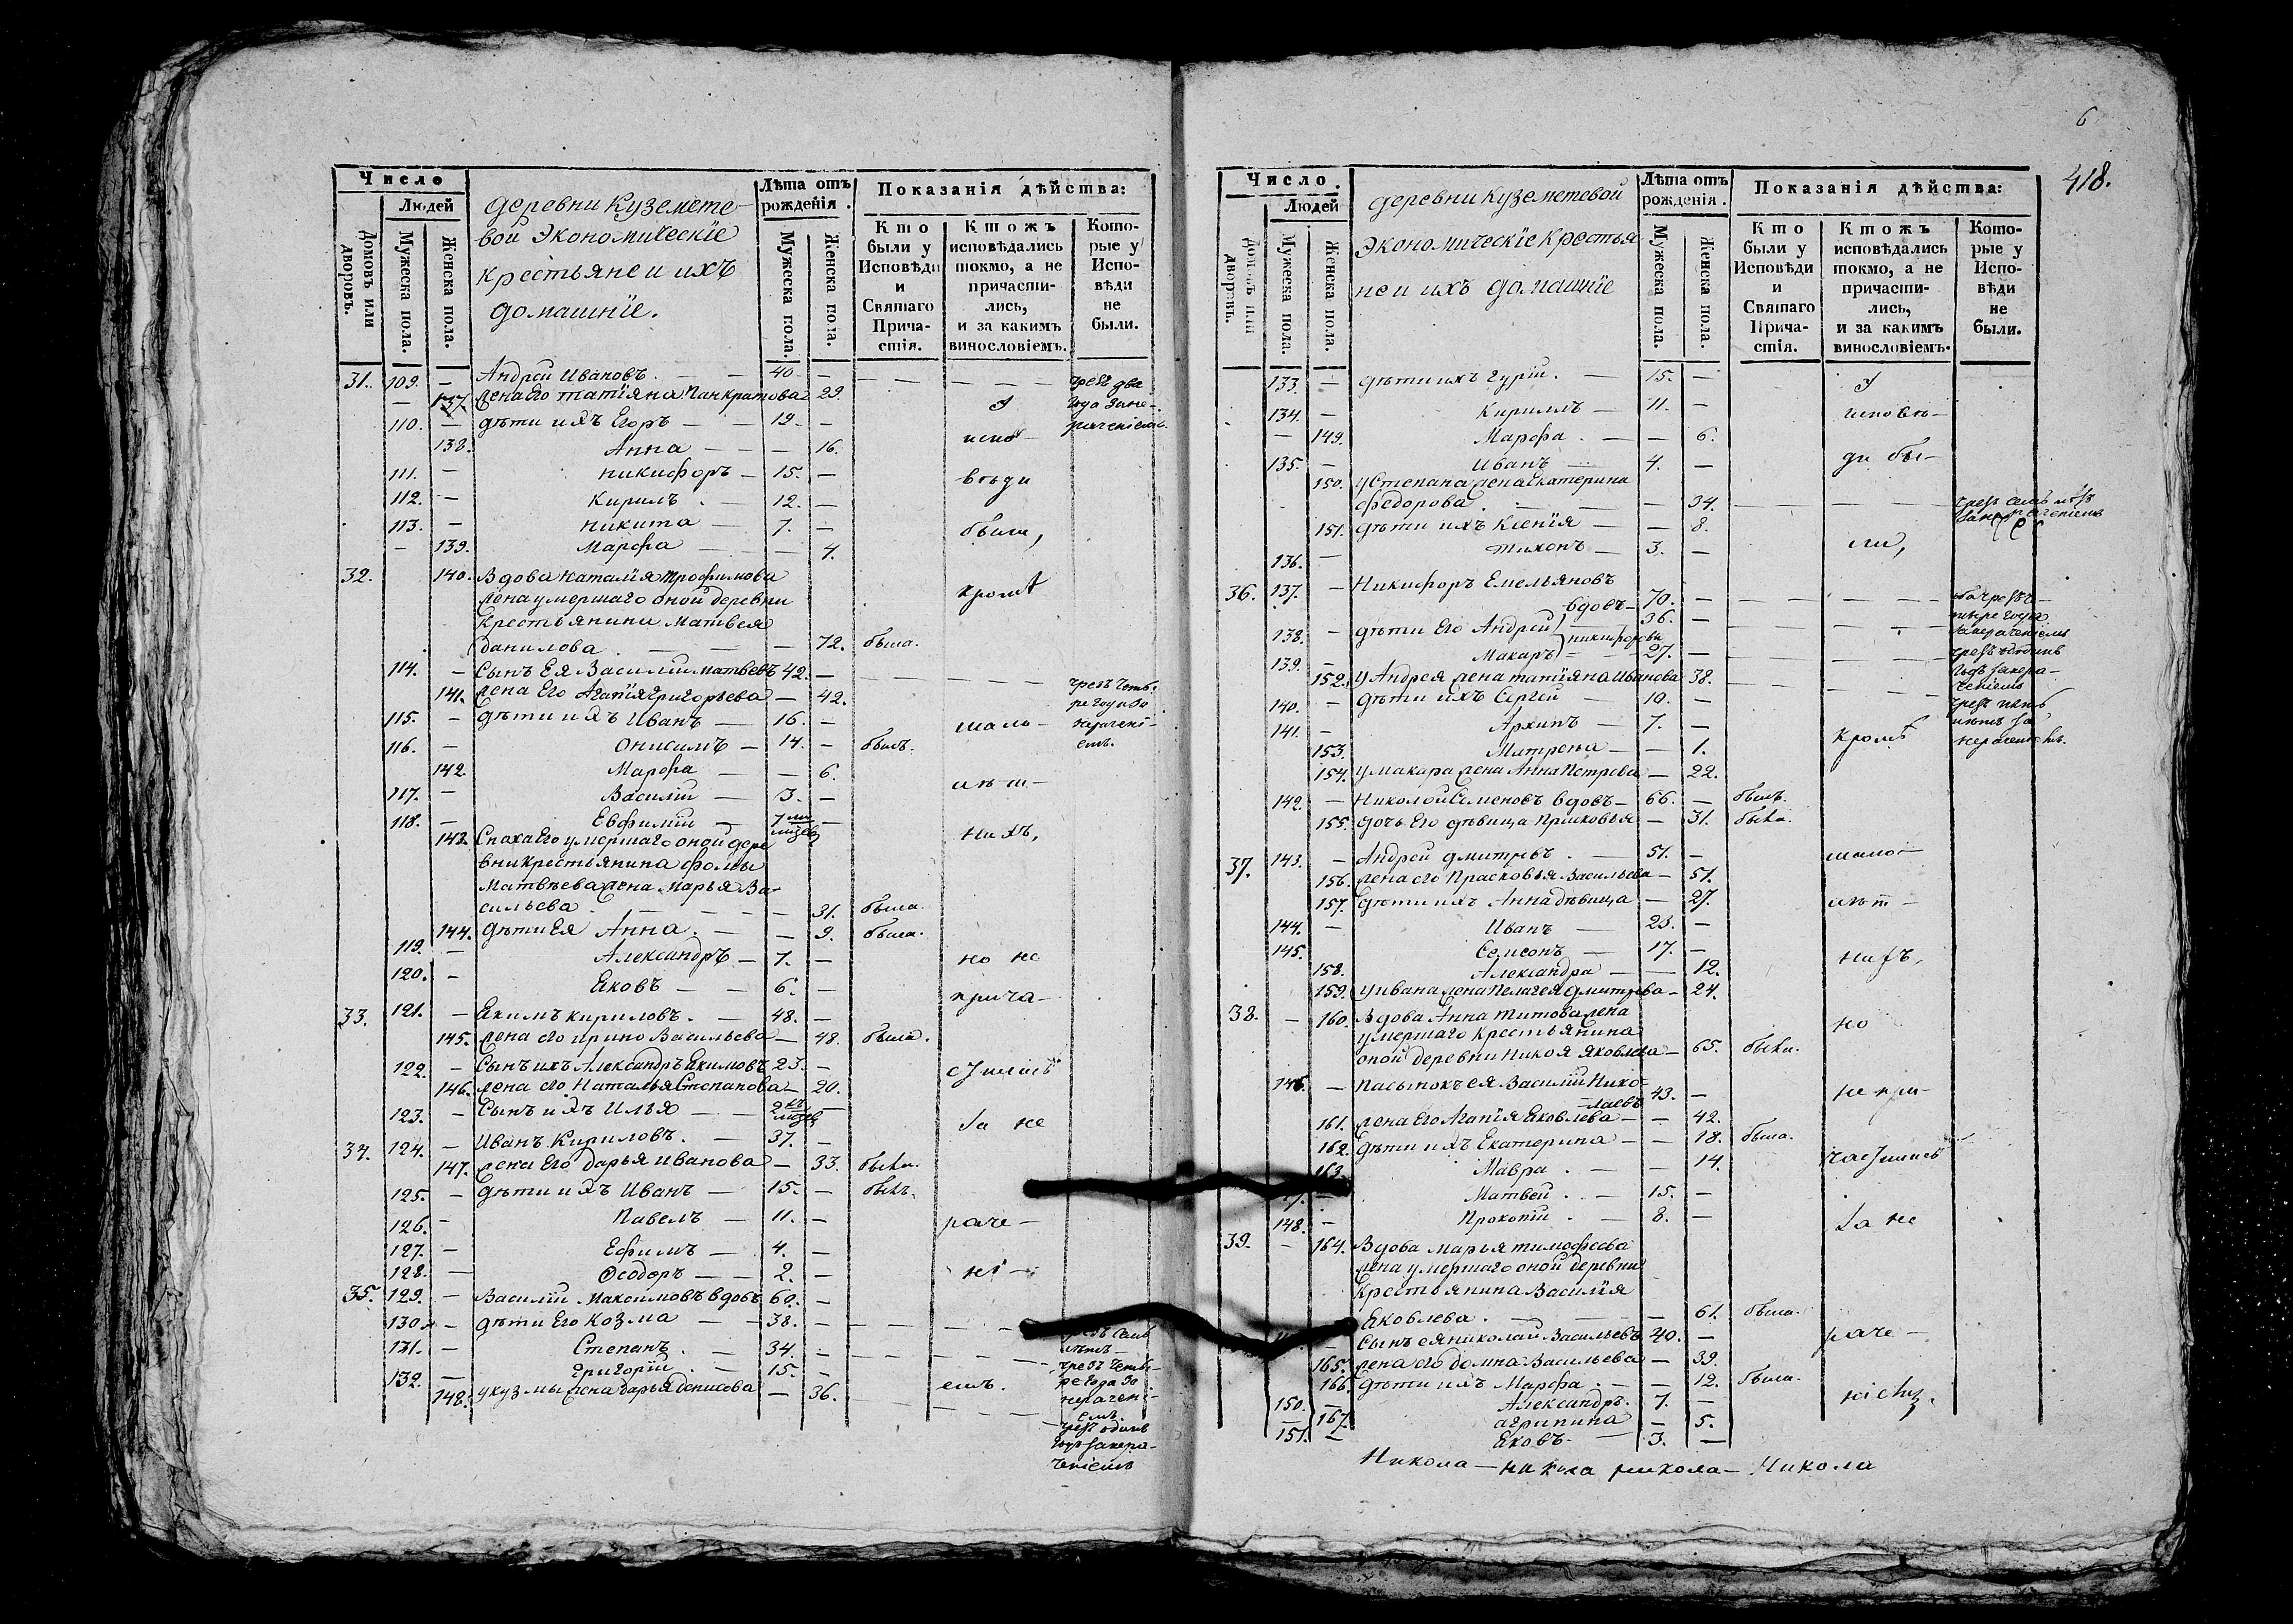 Число
Людей
Домовъ или дворовъ.
Мужеска пола.
Женска пола.
деревни Куземете-
вой Экономическіе
крестьяне и ихъ
домашніе.
Лѣта отъ рожденія.
Мужеска пола.
Женска пола.
Показанія дѣйства:
Кто были у Исповѣди и Святаго Причастія.
Ктожъ исповѣдались токмо, а не причастились, и за какимъ винословіемъ.
Которые у Исповѣди не были.
31. 109. — Андрей Ивановъ. — — 40 — чрезъ два
— 137. жена Его татіяна Панкратова 29. У года зане-
110. — дѣти ихъ Егоръ — — 19. — раченіемъ
138. Анна — — — 16. испо-
111. — никифоръ — 15. — вѣди
112. — Кирилъ. — 12. —
113. — никита — 7. — были,
— 139. Марфа — — 4.
32. 140. Вдова наталія трофимова
жена умершаго оной деревни кромѣ
Крестьянина Матвея
данилова. — — — 72. была.
114. — Сынъ Ея Василій матвевъ 42. —
141. жена Его Агапія григорьева — 42. чрезъ четы-
ре года за
115. — дѣти ихъ Иванъ — 16. — мало- нерачені-
116. — онисимъ — 14. — былъ. емъ.
142. Марфа — — 6.
117. — Василій — 3. — лѣт-
118. — Евфимій — 7 ми — нихъ,
мѣсяц
143. Сноха Его умершаго оной дере
вни крестьянина фомы
Матвѣева жена марья Ва-
сильева. — — — 31. была.
144. дѣти Ея Анна. — — 9. была.
119. — Александръ — 7. — но не
120. — Яковъ — — 6. — прича-
33. 121. — Якимъ кириловъ. — 48. —
145. жена его ирина Васильева — 48. была.
122. — Сынъ ихъ Александръ Якимовъ 23. — стились
146. жена его Наталья Степанова — 20.
123. — Сынъ ихъ Илья — — 2 хъ — за не
мѣсяц
34. 124. — Иванъ Кириловъ. — 37. —
147. жена Его дарья иванова — 33. была.
125. — дѣти ихъ Иванъ — 15. — былъ.
126. — Павелъ — 11. — раче-
127. — Ефимъ — 4. —
128. — Ѳеодоръ — — 2. — ні-
35. 129. — Василій Максимовъ вдовъ 60. —
130. — дѣти Его Козма — — 38. —
чрезъ семь
131. — Степанъ. — 34. — лѣтъ —
чрезъ четы-
132. — Григорій. — 15. — ре года за
148. у кузмы жена дарья денисова — 36. емъ. нерачені-
емъ.
чрезъ одинъ
годъ занера-
ченіемъ
6
418.
Число.
Людей
Домовъ или дворовъ.
Мужеска пола.
Женска пола.
деревни Куземетевой
Экономическіе Крестья
не и ихъ домашніе
Лѣта отъ рожденія.
Мужеска пола.
Женска пола.
Показанія дѣйства:
Кто были у Исповѣди и Святаго Причастія.
Ктожъ исповѣдались токмо, а не причастились, и за какимъ винословіемъ.
Которые у Исповѣди не были.
133. — дѣти ихъ гурій. — 15. — У
134. — Кириллъ — 11. — исповѣ-
— 149. Марфа. — — 6.
135. — Иванъ — 4. — ди бы-
150. у Степана жена Екатерина
федорова. — — — 34. чрезъ семь лѣтъ
151. дѣти ихъ Ксенія — — 8. занераченіемъ
136. — тихонъ — 3. — ли,
36. 137. — Никифоръ Емельяновъ
вдовъ — 70. —
138. — дѣти Его Андрей) — 36. — года
никифоровы занераченіемъ
139. — Макаръ) — 27. — чрезъ одинъ
152. у Андрея жена татіяна Иванова 38. годъ занера-
140. — дѣти ихъ Сергей — 10. — ченіемъ
чрезъ пять
141. — Архипъ — 7. — кромѣ лѣтъ за
153. Матрена — — 1. нераченіемъ.
154. у макара жена Анна Петрова — 22.
142. — Николай Семеновъ вдовъ — 66. — былъ.
155. дочь Его дѣвица Прасковья — 31. была.
37. 143. — Андрей дмитревъ. — 51. — мало-
156. жена его Прасковья Васильева — 51.
157. дѣти ихъ Анна дѣвица — 27. лѣт-
144. — Иванъ — 23. —
145. — Семсонъ — 17. — нихъ,
158. Александра — — 12.
159. у ивана жена Пелагея дмитрева — 24.
38. — 160. Вдова Анна титова жена но
умершаго крестьянина
оной деревни Никол Яковлева — 65. была.
146. — Пасынокъ ея Василій Нико-
лаевъ 43. — не при-
161. жена Его Агапія Яковлева — — 42.
162. дѣти ихъ Екатерина — — 18. была.
163. Мавра. — — 14. частились
Матвей. — 15. —
148. — Прокопій. — 8. — за не
39. — 164. Вдова марья тимофеева
жена умершаго оной деревни
крестьянина Василія
Яковлева. — — — 61. была.
— Сынъ ея николай Васильевъ 40. — раче-
165. жена его домна Васильева — 39.
166. дѣти ихъ Марфа. — — 12. была.
150. — Александръ. 7. — ніемъ.
— 167. агрипина — 5.
151. — Яковъ — 3. —
Никола — никола никола — Никола